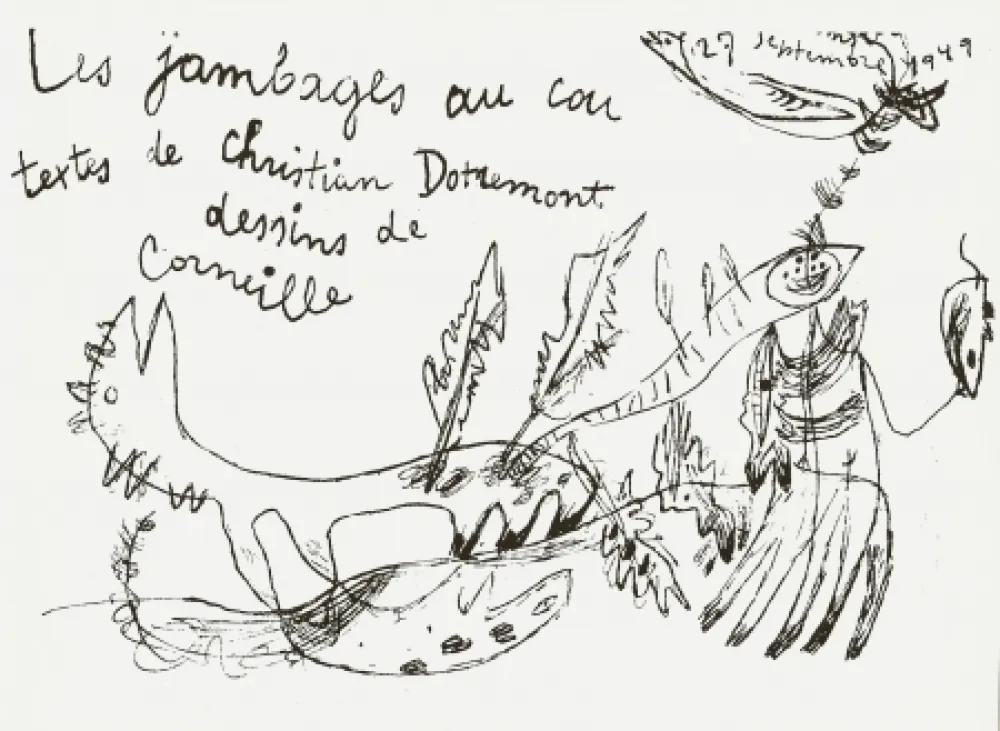 Les jambages au cou
textes de Christian Dotremont
dessins de
Corneille
27 septembre 1949